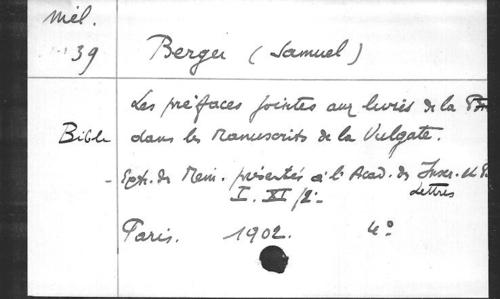 Mél.
39
Berger (Samuel)
Les préfaces jointes aux livres de la
Bible dans les Manuscrits de la Vulgate.
- Extr. des Mém. présentés à l'Acad. des Inscr. et B
I. XI/2- Lettres
Paris. 1902. 4°